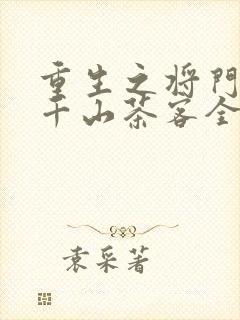 重生之将門
千山茶客全
袁采著